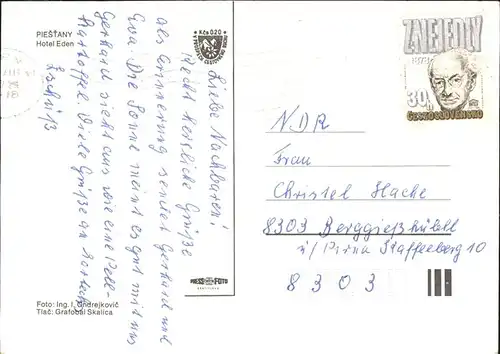 PIEŠŤANY
Hotel Eden
Kčs 0,20
Liebe Nachbarin!
Recht herzliche Grüße
als Erinnerung sendet Gerhard und
Eva. Die Sonne meint es gut mit uns
Gerhard sieht aus wie eine Pell-
kartoffel. Viele Grüße an
PRESSFOTO
BRATISLAVA
Foto: Ing. I. Ondrejkovič
Tlač: Grafobal Skalica
Z. NEJEDLÝ
1878
30h
ČESKOSLOVENSKO
NDR
Frau
Christel Hache
8303 Berggießhübell
ü/ Pirna Staffeberg 10
8303